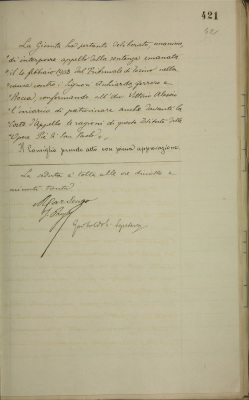 421
421
La Giunta ha pertanto deliberato, unanime,
"di interporre appello dalla sentenza emanata
il 10 febbraio 1903 dal Tribunale di Torino nella
causa contro i Signori Richiardi, Gervino e
Rocca, confermando all'Avv. Vittorio Alessio
l'incarico di patrocinare anche davanti la
Corte d'Appello le ragioni di questo Istituto delle
Opere Pie di San Paolo".
Il Consiglio prende atto con piena approvazione.
La seduta è tolta alle ore diciotto e
minuti trenta